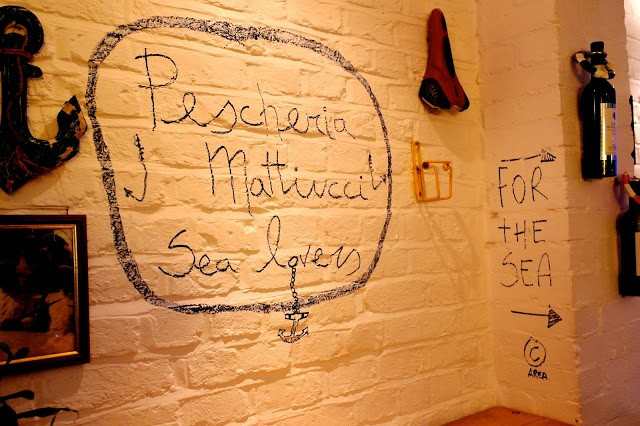 Pescheria
Mattiucci
Sea lovers
FOR
tHE
SEA
C
AREA